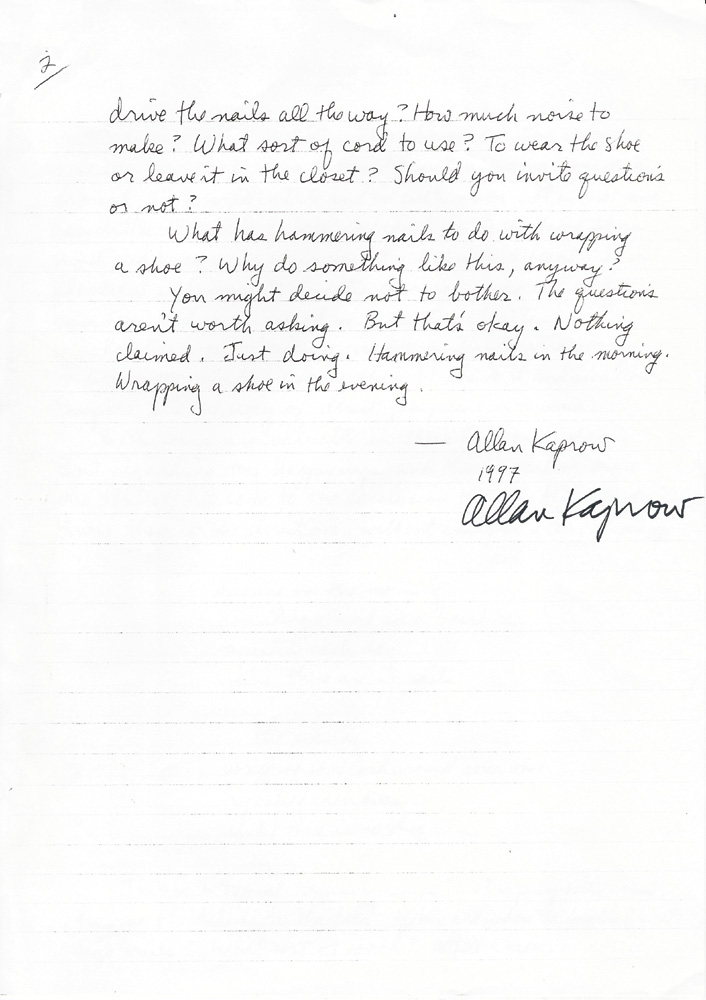 2
drive the nails all the way? How much noise to
make? What sort of cord to use? To wear the shoe
or leave it in the closet? Should you invite questions
or not?
What has hammering nails to do with wrapping
a shoe? Why do something like this, anyway?
You might decide not to bother. The questions
aren't worth asking. But that's okay. Nothing
claimed. Just doing. Hammering nails in the morning.
Wrapping a shoe in the evening.
— Allan Kaprow
1997
Allan Kaprow